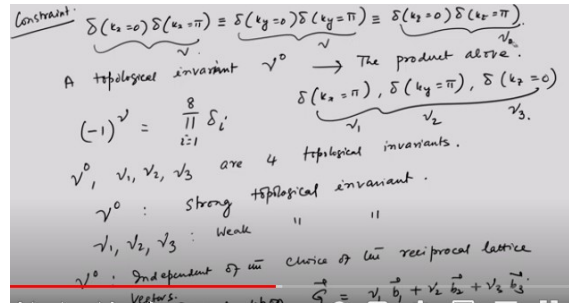 Constraint: δ(kx=0) δ(kx=π) ≡ δ(ky=0) δ(ky=π) ≡ δ(kz=0) δ(kz=π).
ν ν ν
A topological invariant ν⁰ → The product above.
δ(kx=π), δ(ky=π), δ(kz=0)
ν₁ ν₂ ν₃.
(-1)^ν = ∏_{i=1}^{8} δi
ν⁰, ν₁, ν₂, ν₃ are 4 topological invariants.
ν⁰ : Strong topological invariant.
ν₁, ν₂, ν₃ : Weak " "
ν⁰ : Independent of the choice of the reciprocal lattice
vectors. G⃗ = ν₁ b⃗₁ + ν₂ b⃗₂ + ν₃ b⃗₃.